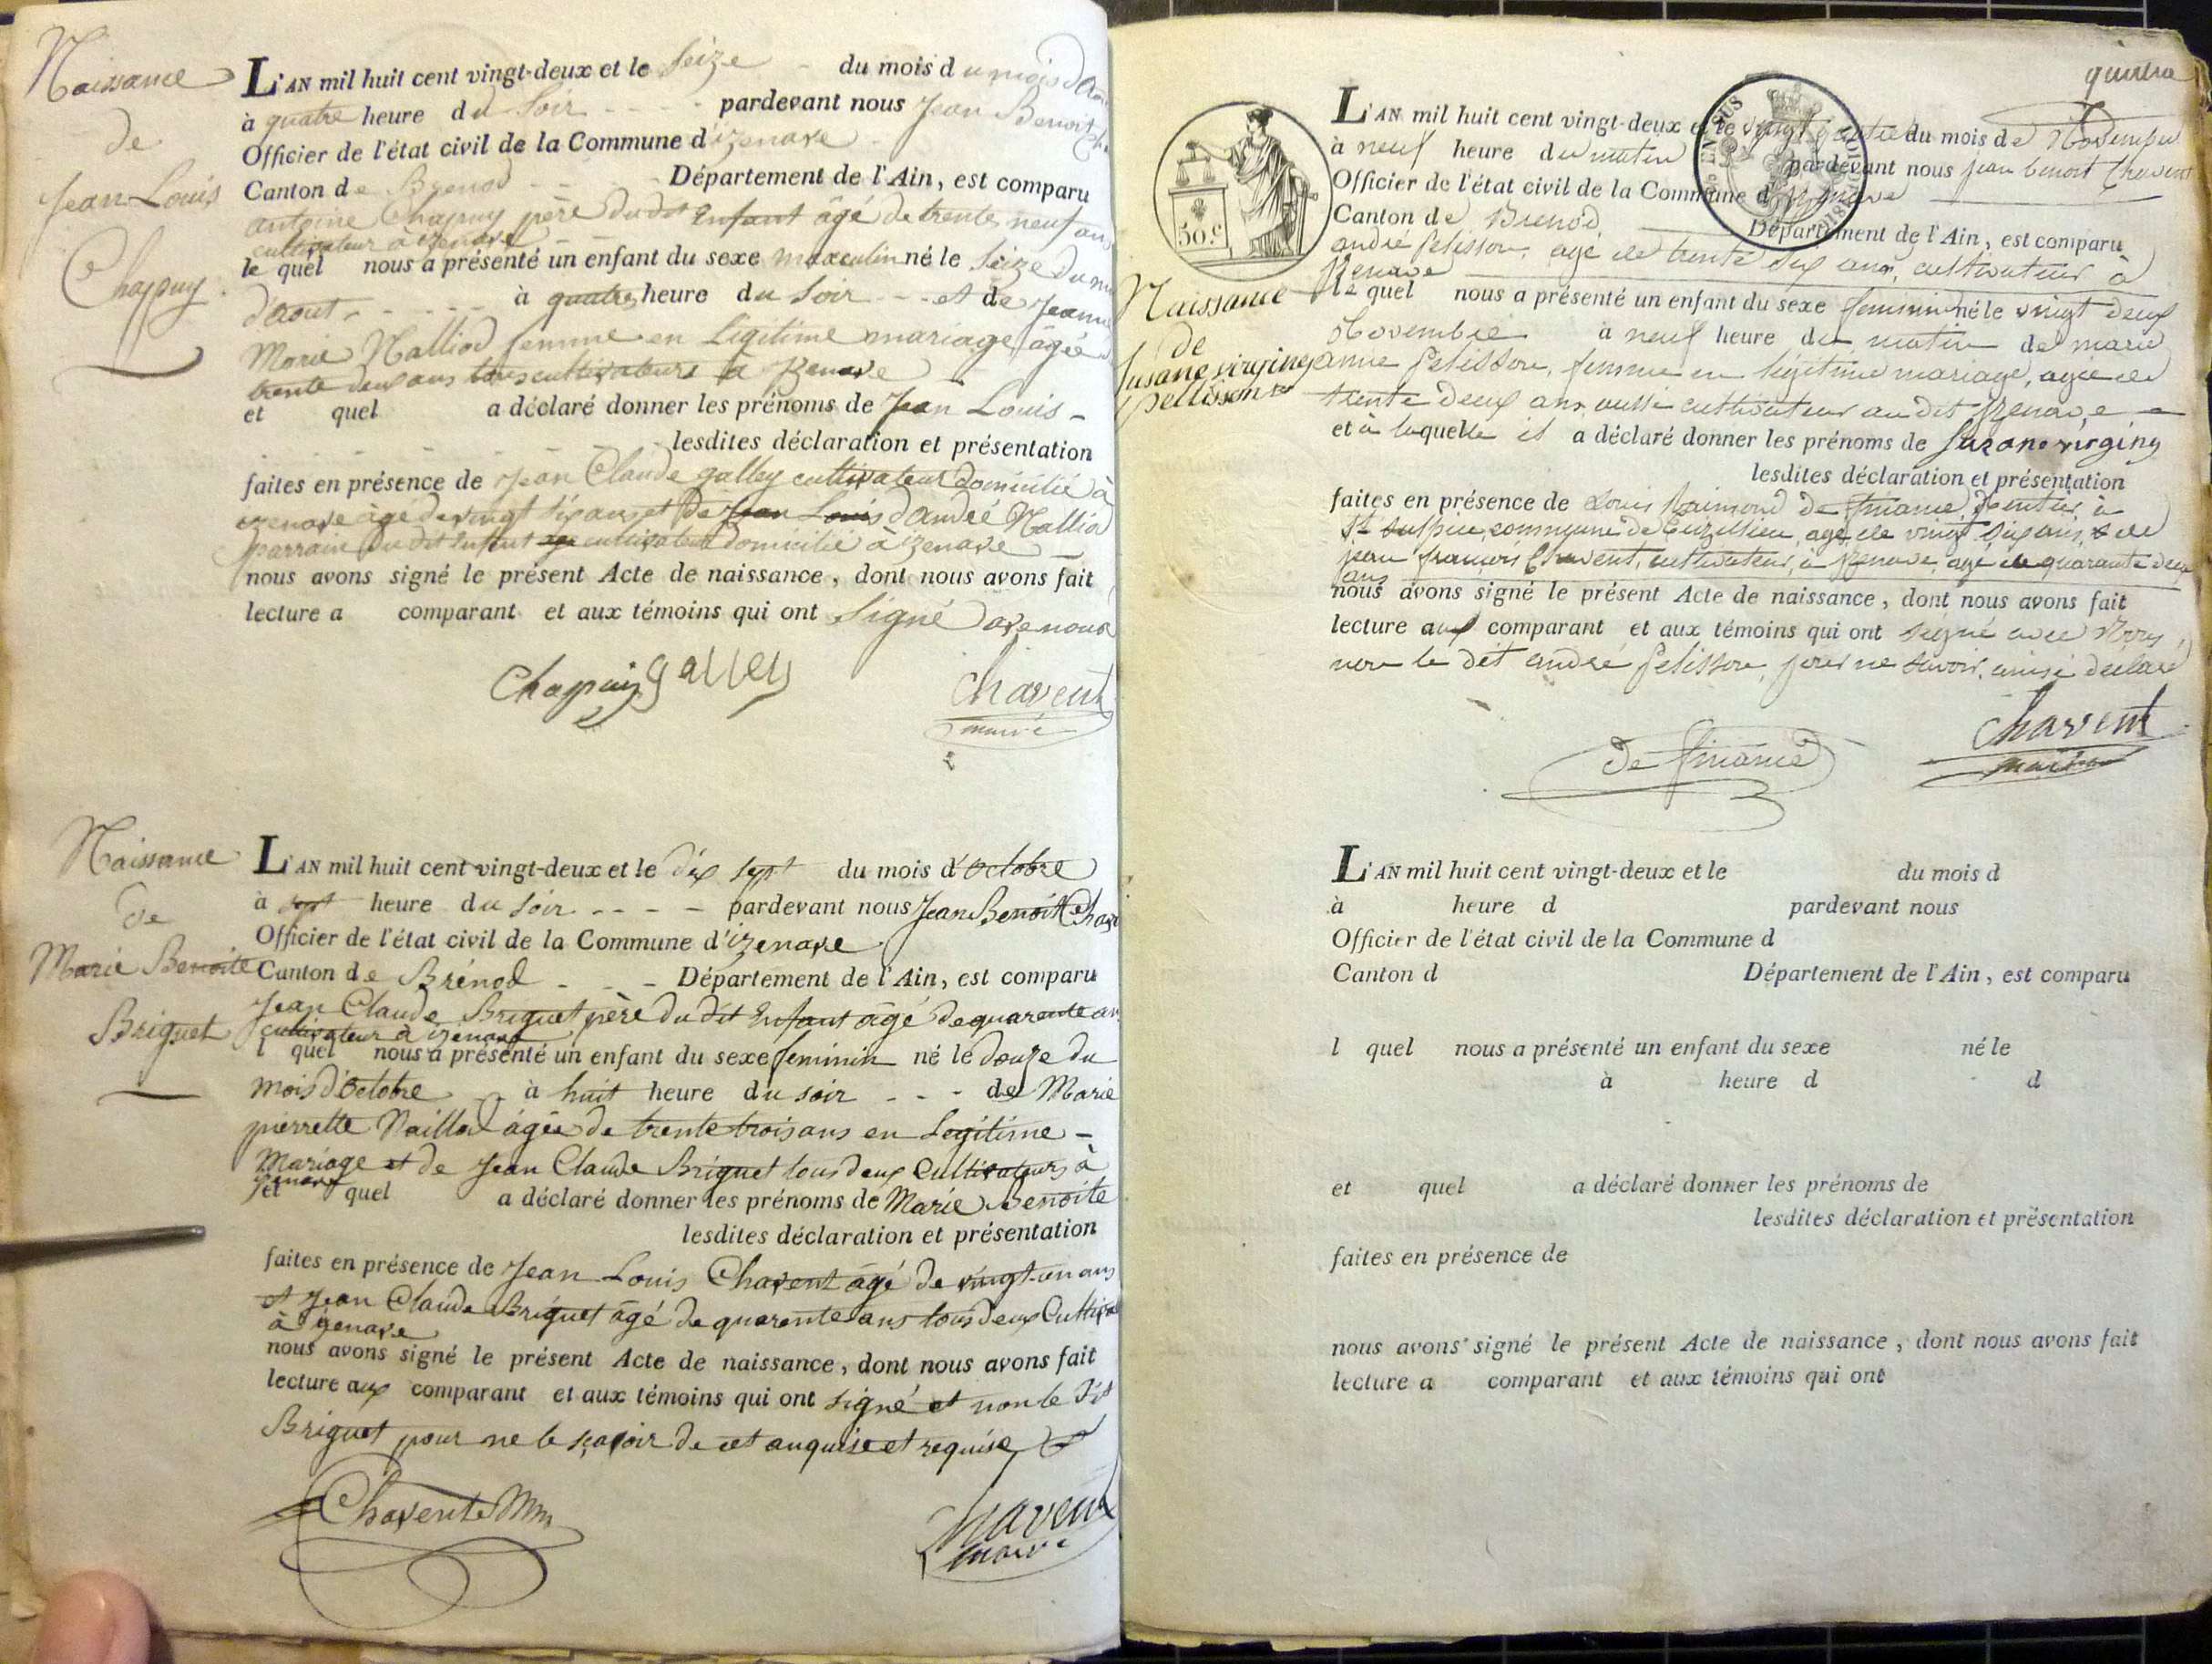 Naissance
de
Jean Louis
Chapuy
L'AN mil huit cent vingt-deux et le Seize du mois d u mois d'Aou
à quatre heure du Soir pardevant nous Jean Benoit Cha
Officier de l'état civil de la Commune d'izenave
Canton de Brenod Département de l'Ain, est comparu
antoine Chapuy père du dit Enfant âgé de trente neuf ans
cultivateur à izenave
le quel nous a présenté un enfant du sexe masculin né le Seize du m
d'aout à quatre heure du Soir et de Jeanne
Marie Nalliod femme en Légitime mariage âgée
trente deux ans tous cultivateurs a Izenave
et quel a déclaré donner les prénoms de Jean Louis
lesdites déclaration et présentation
faites en présence de Jean Claude galley cultivateur domicilié à
izenave âgé de vingt six ans et De Jean Louis d'andré Nalliod
parrain du dit Enfant cultivateur domicilié à izenave
nous avons signé le présent Acte de naissance, dont nous avons fait
lecture a comparant et aux témoins qui ont Signé avenous
Chapuiy galley Chavent
maire
Naissance
de
Marie Benoite
Briguet
L'AN mil huit cent vingt-deux et le dix sept du mois d'Octobre
à sept heure du Soir pardevant nous Jean Benoit Chave
Officier de l'état civil de la Commune d'izenave
Canton de Brénod Département de l'Ain, est comparu
Jean Claude Briguet père du dit Enfant âgé de quarente an
cultivateur à izenave
l quel nous a présenté un enfant du sexe feminin né le douze du
mois d'Octobre à huit heure du soir de Marie
pierrette Naillod âgée de trente trois ans en Legitime
Mariage et de Jean Claude Briguet tous deux Cultivateurs à
izenave
et quel a déclaré donner les prénoms de Marie Benoite
lesdites déclaration et présentation
faites en présence de Jean Louis Chavent âgé de vingt-un ans
et Jean Claude Briguet âgé de quarente ans tous deux Cultiva
à izenave
nous avons signé le présent Acte de naissance, dont nous avons fait
lecture aux comparant et aux témoins qui ont signé et non le dit
Briguet pour ne le sçavoir de cet anquise et requise
Chavent Chavent
maire
quatre
50.c
EN SUS
L'AN mil huit cent vingt-deux et le vingt quatre du mois de Novembre
à neuf heure du matin pardevant nous jean benoit Chavent
Officier de l'état civil de la Commune d'Izenave
Canton de Brenod Département de l'Ain, est comparu
andré pelisson, agé de trente six ans, cultivateur à
Izenave
Naissance
de
Susane virginy
pellisson
le quel nous a présenté un enfant du sexe feminin né le vingt deux
Novembre à neuf heure du matin de marie
anne pelisson, femme en légitime mariage, agée de
trente deux ans aussi cultivateur au dit Izenave
et à laquelle il a déclaré donner les prénoms de Suzane virginy
lesdites déclaration et présentation
faites en présence de Louis Raimond De finance Rentier à
St Sulpice, commune de Cuzellieu, agé de vingt six ans, & de
jean françois Chavent, cultivateur, à Izenave, agé de quarante deux
ans
nous avons signé le présent Acte de naissance, dont nous avons fait
lecture aux comparant et aux témoins qui ont signé avec Nous,
non le dit andré pelisson, pour ne savoir, ainsi declaré
De finance Chavent
maire
L'AN mil huit cent vingt-deux et le du mois d
à heure d pardevant nous
Officier de l'état civil de la Commune d
Canton d Département de l'Ain, est comparu
l quel nous a présenté un enfant du sexe né le
à heure d d
et quel a déclaré donner les prénoms de
lesdites déclaration et présentation
faites en présence de
nous avons signé le présent Acte de naissance, dont nous avons fait
lecture a comparant et aux témoins qui ont